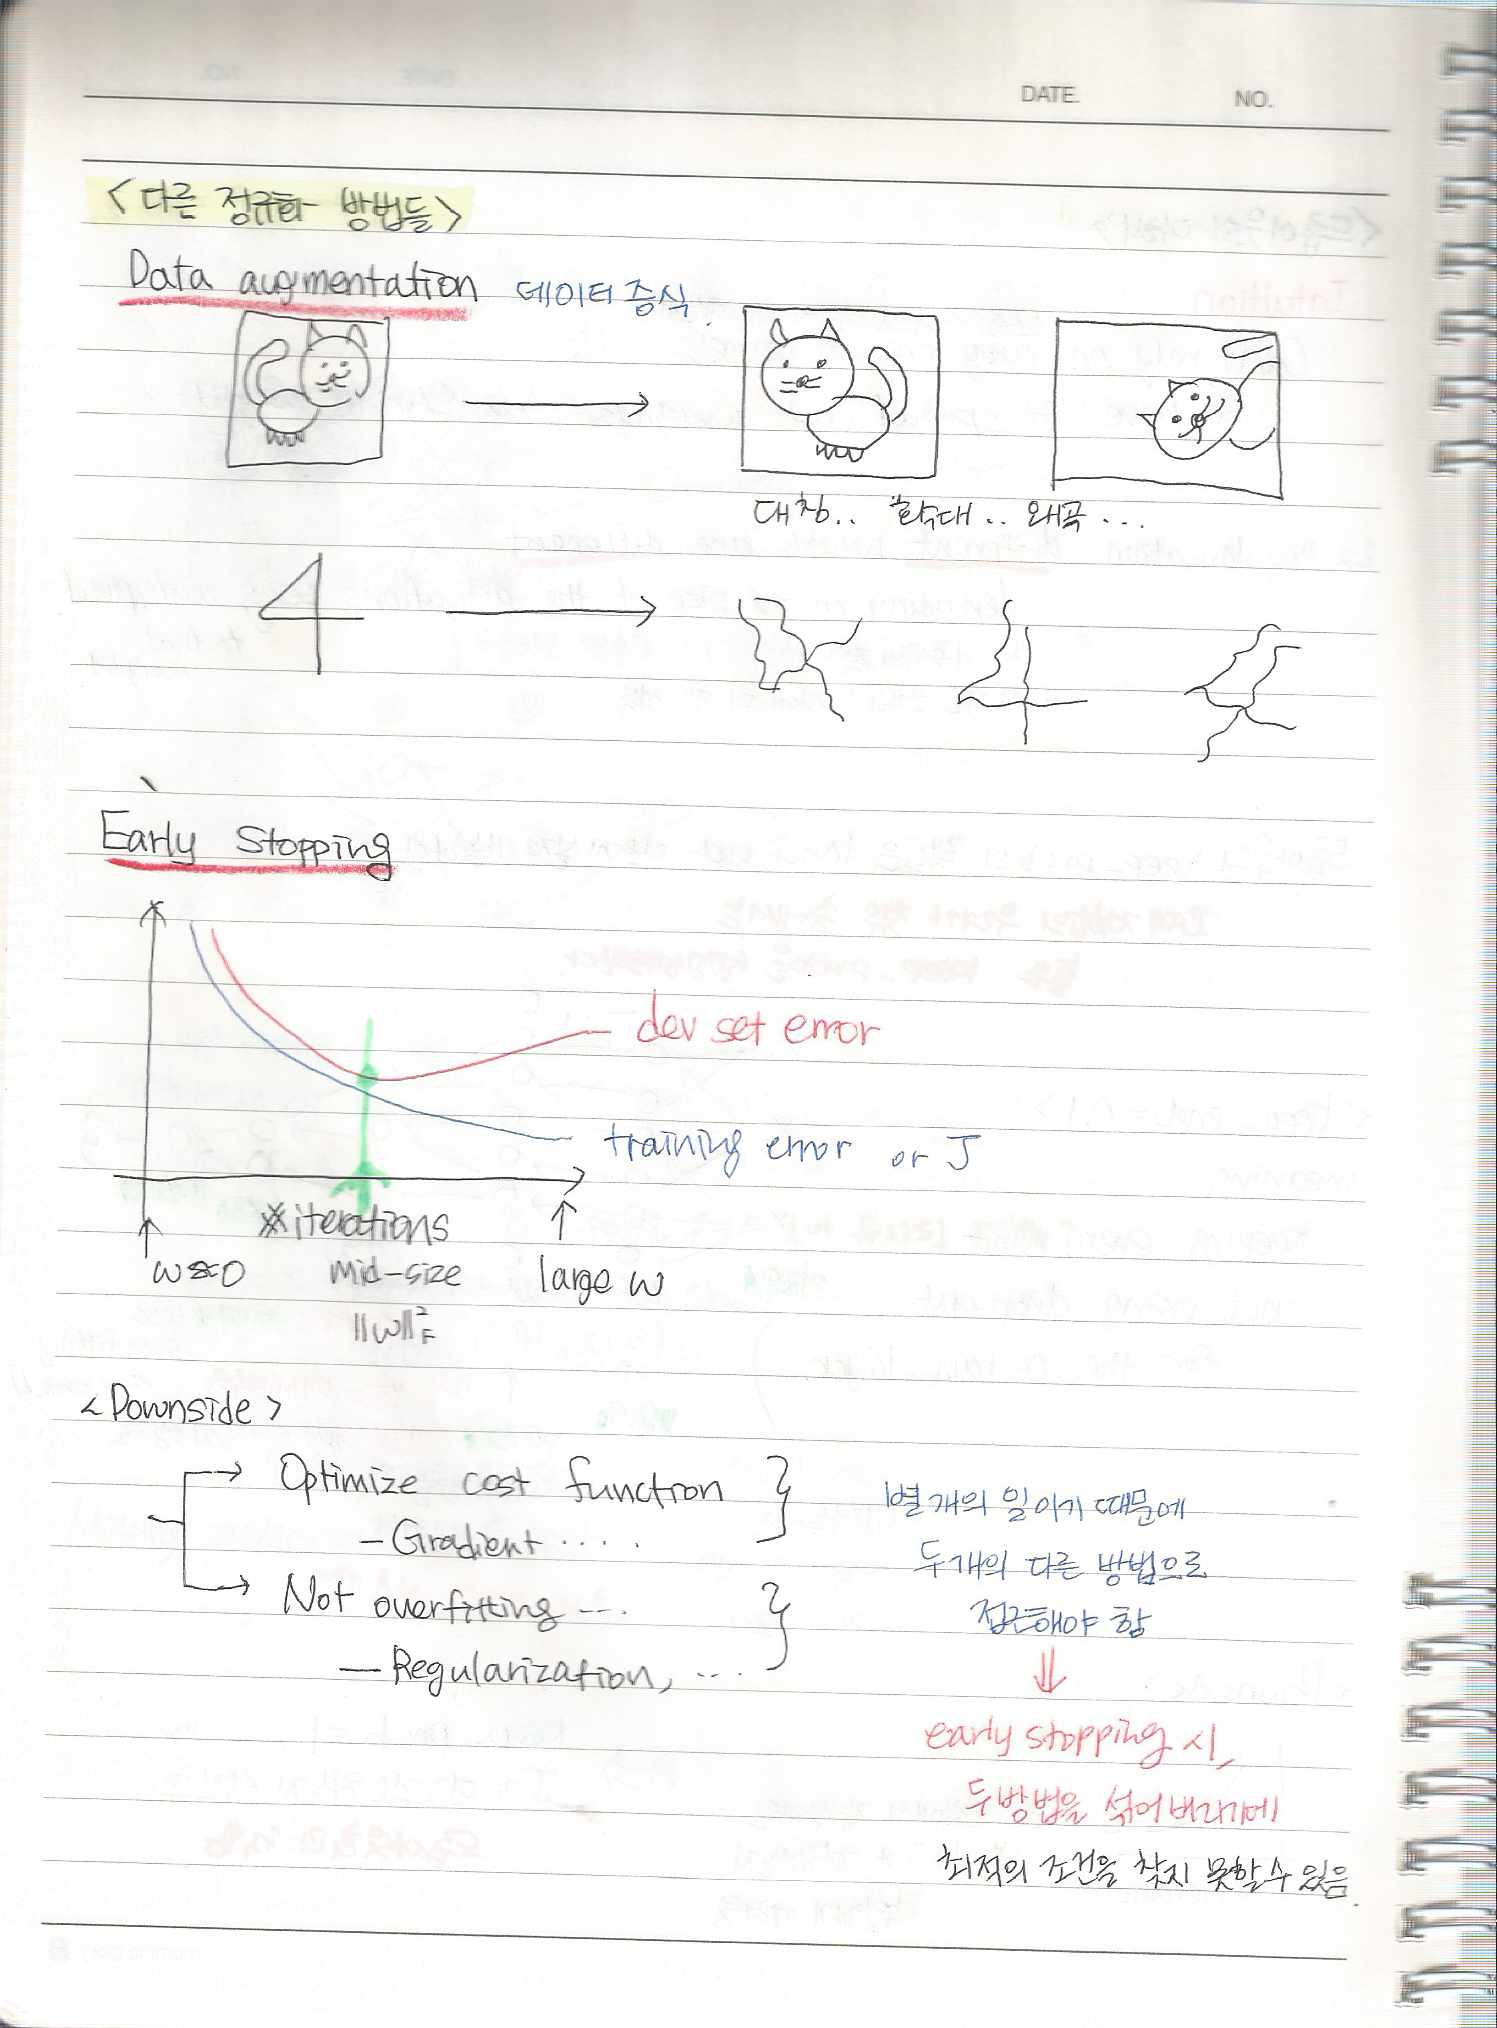 DATE.
NO.
<다른 정규화 방법들>
Data augmentation 데이터 증식
대칭.. 확대.. 왜곡...
4
Early Stopping
dev set error
training error or J
#iterations
w≈0 mid-size large w
||w||²F
<Downside>
Optimize cost function
- Gradient .....
Not overfitting ---.
- Regularization, ....
별개의 일이기 때문에
두개의 다른 방법으로
접근해야 함
early stopping 시,
두방법을 섞어버리기에
최적의 조건을 찾지 못할 수 있음.